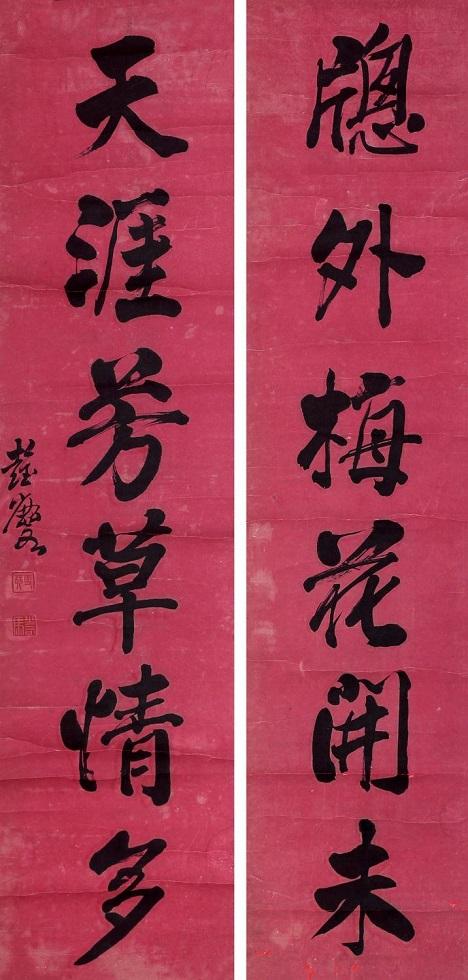 牕外梅花開未
天涯芳草情多